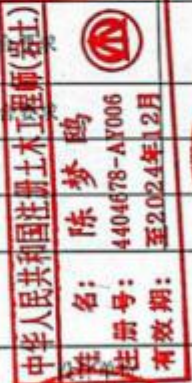 中华人民共和国注册土木工程师(岩土)
姓 名: 陈 梦 鸥
注册号: 4404678-AY006
有效期: 至2024年12月